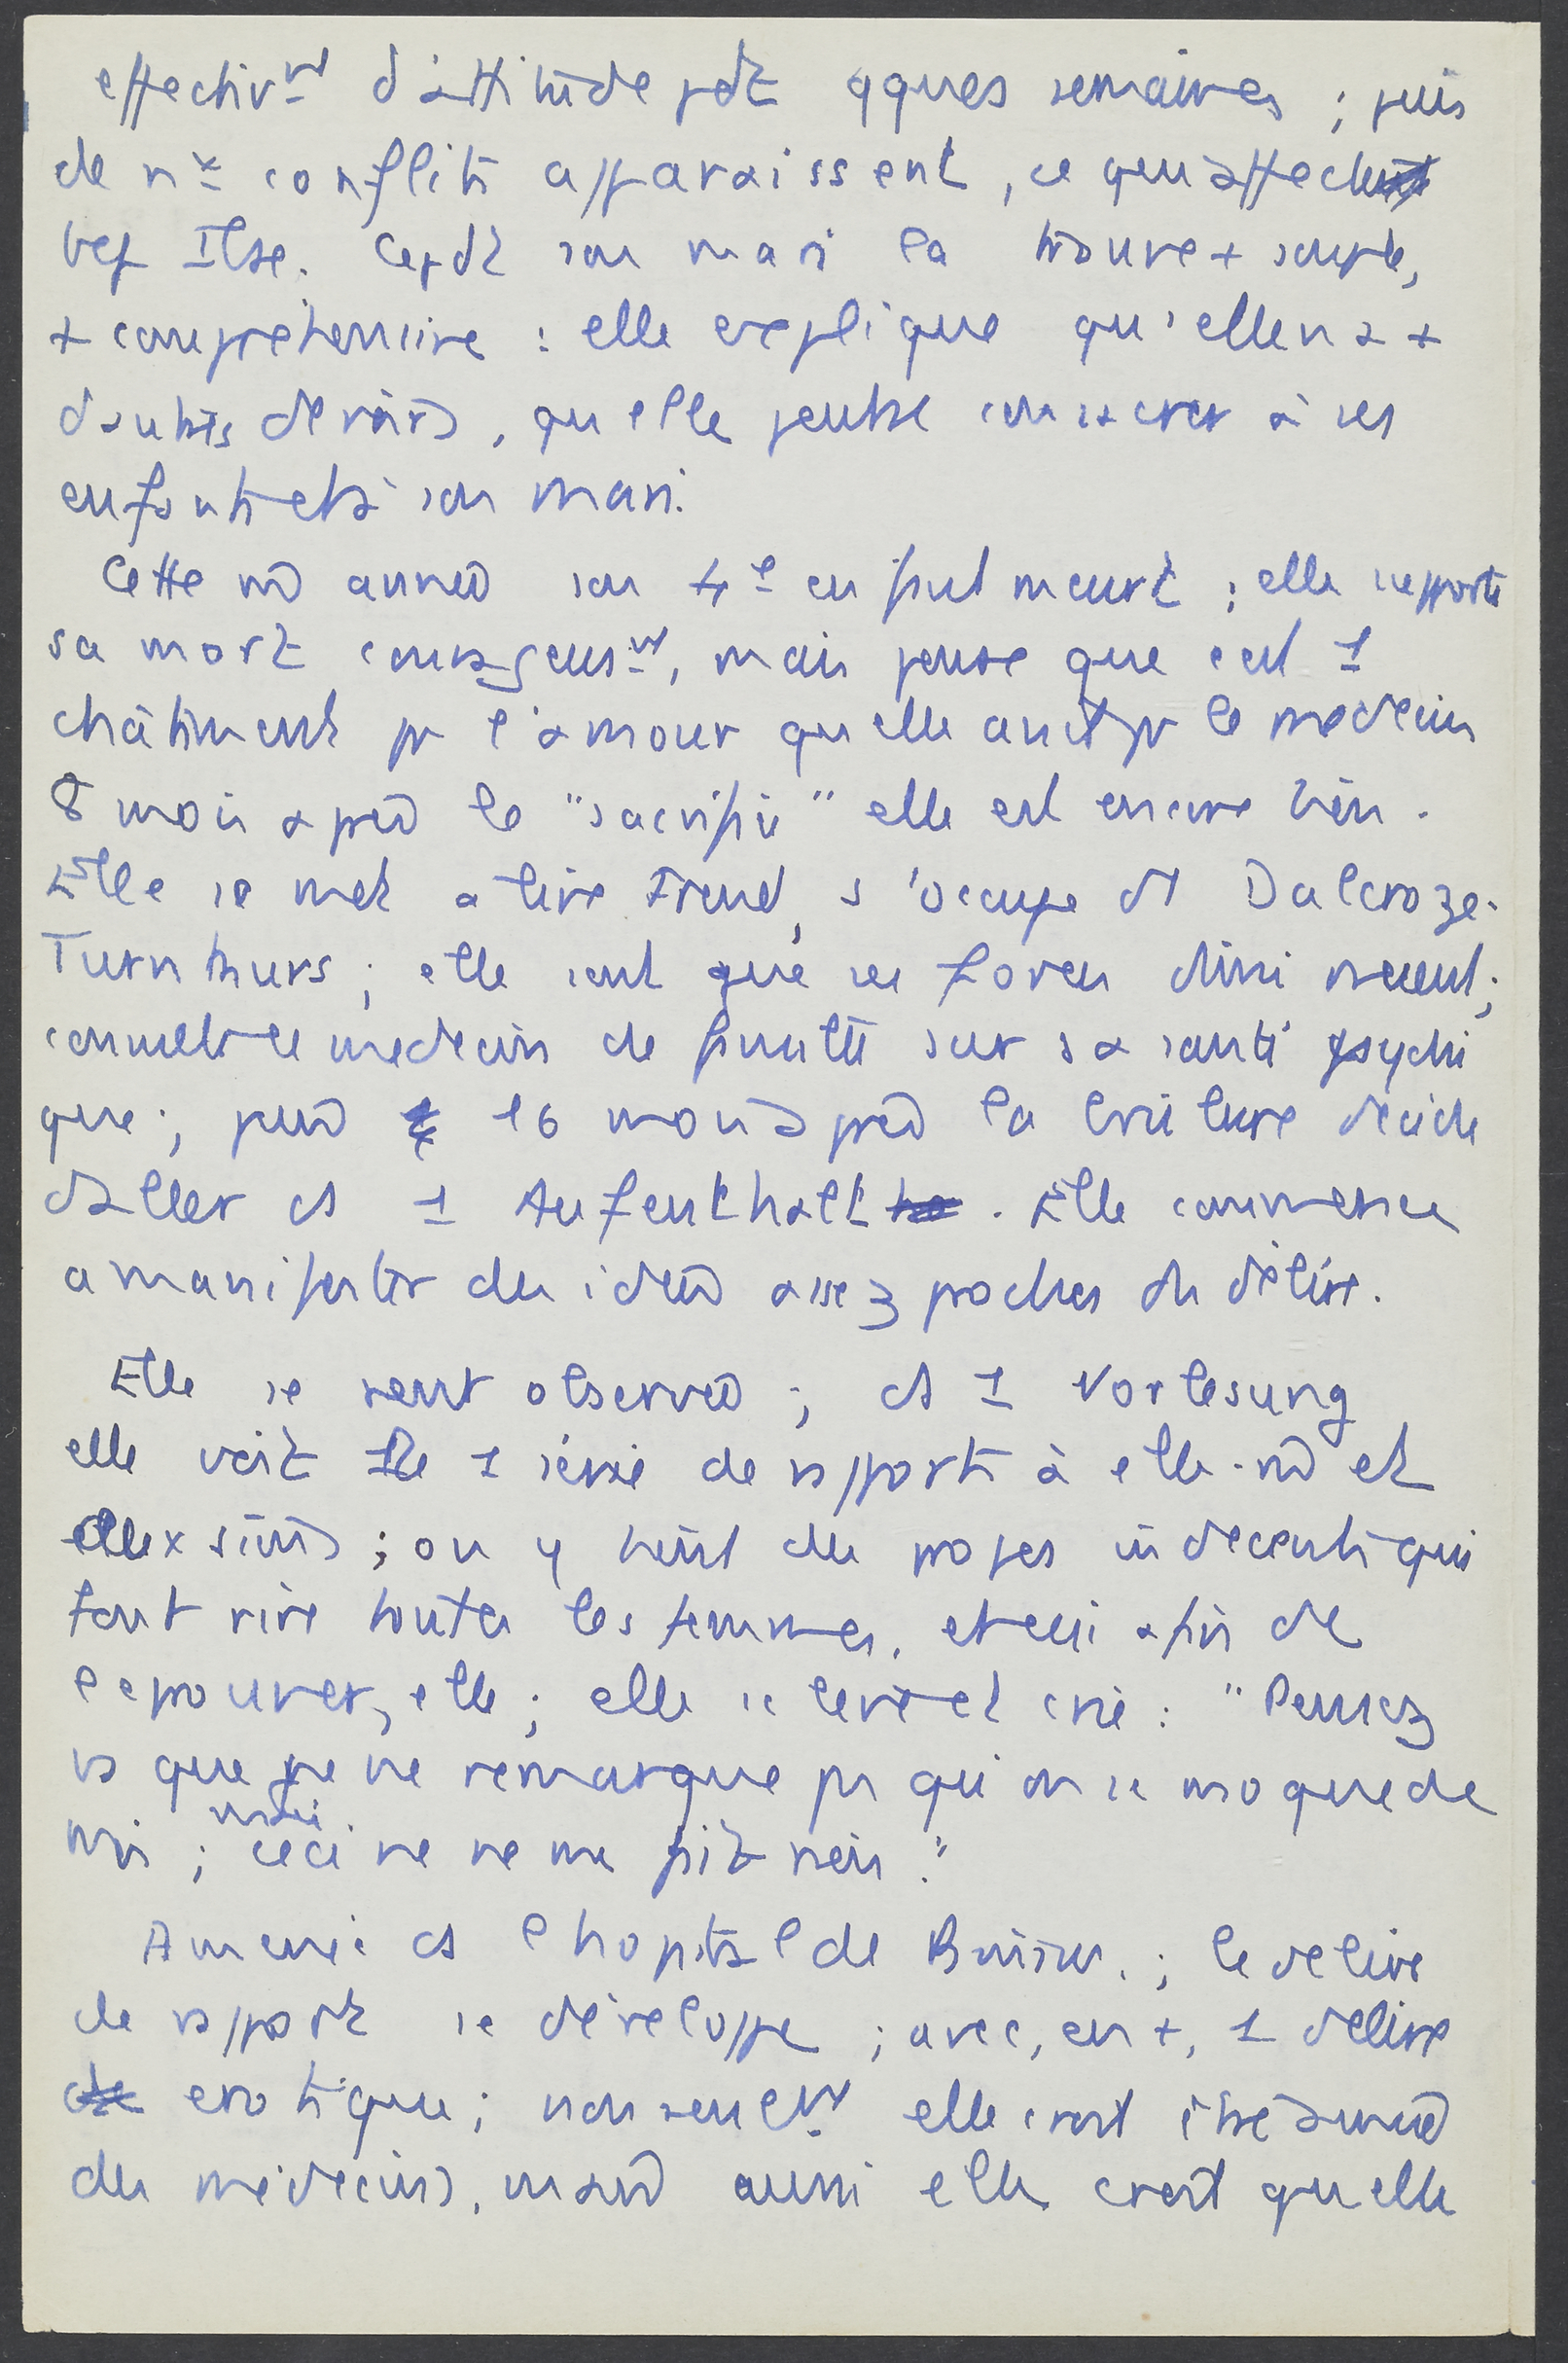 effectivmt d'attitude pdt qques semaines ; puis
de nx conflits apparaissent, ce qui affecte
bcp Ilse. Cepdt son mari la trouve + souple,
+ comprehensive : elle explique qu'elle n'a +
d'autres devoirs, qu'elle peut se consacrer à ses
enfants et à son mari.
Cette m̂ année son 4e enfant meurt ; elle supporte
sa mort courageusmt, mais pense que c'est 1
châtiment pr l'amour qu'elle avait pr le médecin
8 mois après le "sacrifice" elle est encore bien.
Elle se met a lire Freud, s'occupe ds Dalcroze-
Turnkurs ; elle sent que ses forces diminuent ;
connait le medecin de famille sur sa santé psychi
que ; puis 16 mois après la brûlure décide
d'aller ds 1 Aufenthalt. Elle commence
a manifester des idées assez proches du délire.
Elle se sent observée ; ds 1 Vorlesung
elle voit tte 1 série de rapports à elle-m̂ et
aux siens ; on y tient des propos indécents qui
font rire toutes les femmes, et ceci afin de
l'eprouver, elle ; elle se lève et crie : "Pensez
vs que je ne remarque pas qu'on se moque de
moi ; mais ceci ne me fait rien."
Amenée ds l'hopital de Binsw. ; le délire
de rapport se développe ; avec, en +, 1 délire
erotique ; non seulemt elle croit être aimée
des médecins, mais aussi elle croit qu'elle